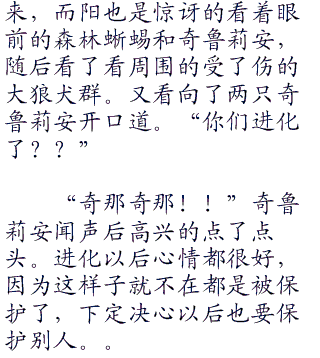 来，而阳也是惊讶的看着眼
前的森林蜥蜴和奇鲁莉安，
随后看了看周围的受了伤的
大狼犬群。又看向了两只奇
鲁莉安开口道。“你们进化
了？？”
“奇那奇那！！”奇鲁
莉安闻声后高兴的点了点
头。进化以后心情都很好，
因为这样子就不在都是被保
护了，下定决心以后也要保
护别人。。